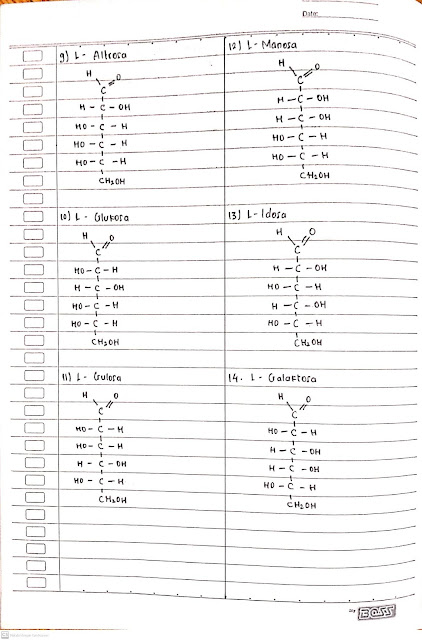 Date:
9) L - Altrosa
H O
C
H - C - OH
HO - C - H
HO - C - H
HO - C - H
CH2OH
10) L - Glukosa
H O
C
HO - C - H
H - C - OH
HO - C - H
HO - C - H
CH2OH
11) L - Gulosa
H O
C
HO - C - H
HO - C - H
H - C - OH
HO - C - H
CH2OH
12) L - Manosa
H O
C
H - C - OH
H - C - OH
HO - C - H
HO - C - H
CH2OH
13) L - Idosa
H O
C
H - C - OH
HO - C - H
H - C - OH
HO - C - H
CH2OH
14. L - Galaktosa
H O
C
HO - C - H
H - C - OH
H - C - OH
HO - C - H
CH2OH
BOSS